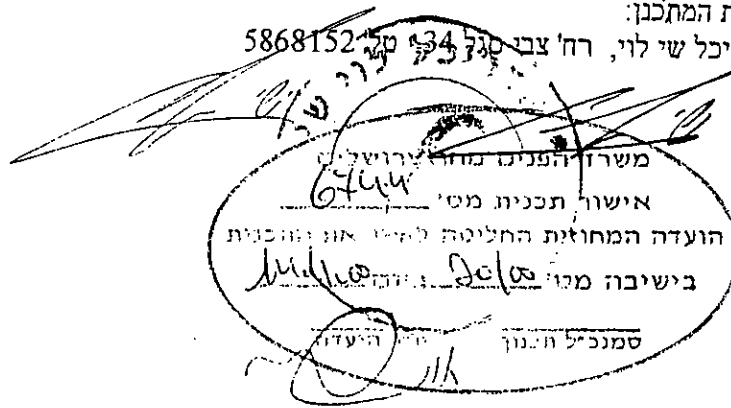 ת המתכנן:
יכל שי לוי, רח' צבי סגל 34 טל' 5868152
משרד הפנים מחוז ירושלים
אישור תכנית מס' 6744
הועדה המחוזית החליטה לאשר את התכנית
בישיבה מס' 20/00 ביום
סמנכ"ל תכנון יו"ר הועדה